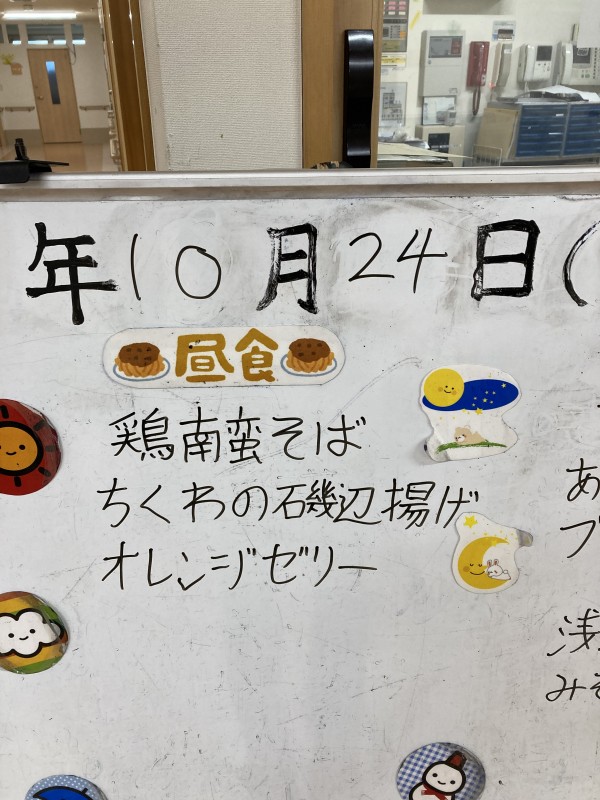 年10月24日(
昼食
鶏南蛮そば
ちくわの磯辺揚げ
オレンジゼリー
あ
ブ
浅
みそ